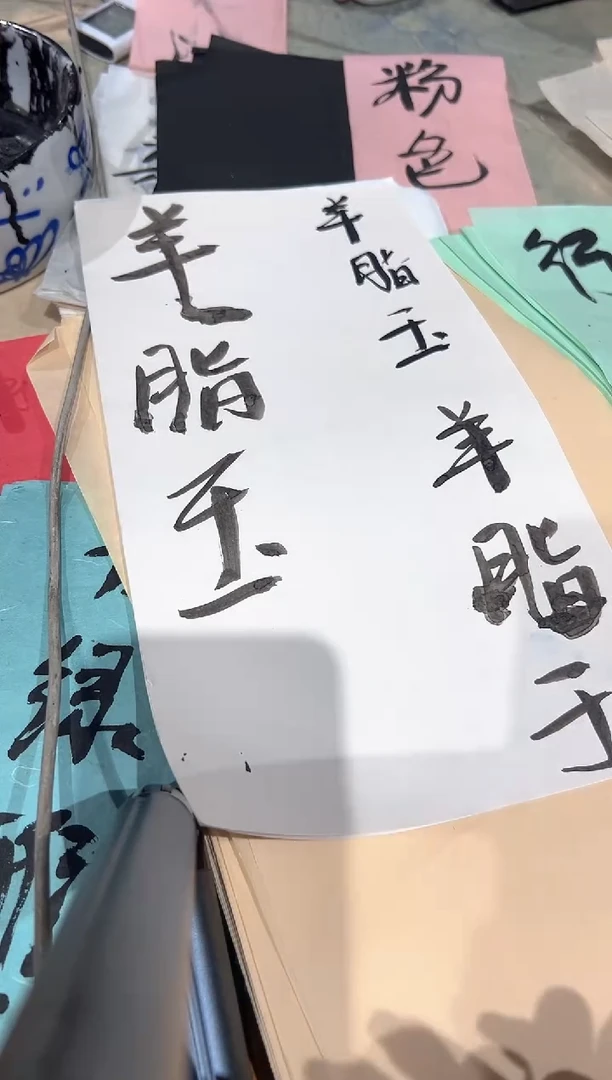 粉色
羊脂玉
羊脂玉
羊脂玉
绿